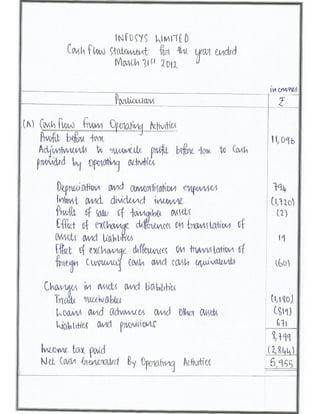 INFOSYS LIMITED
Cash Flow Statement for the year ended
March 31st 2012
in crores
Particulars ₹
(A) Cash Flow From Operating Activities
Profit before tax 11,096
Adjustments to reconcile profit before tax to Cash
provided by Operating activities
Depreciation and amortisation expenses 794
Interest and dividend income (1,720)
Profit of sale of tangible assets (2)
Effect of exchange differences on translation of
assets and liabilities 19
Effect of exchange differences on translation of
foreign currency cash and cash equivalents (60)
Changes in assets and liabilities
Trade receivables (1,180)
Loans and advances and other assets (819)
Liabilities and provisions 671
8,799
Income tax paid (2,844)
Net Cash Generated By Operating Activities 5,955